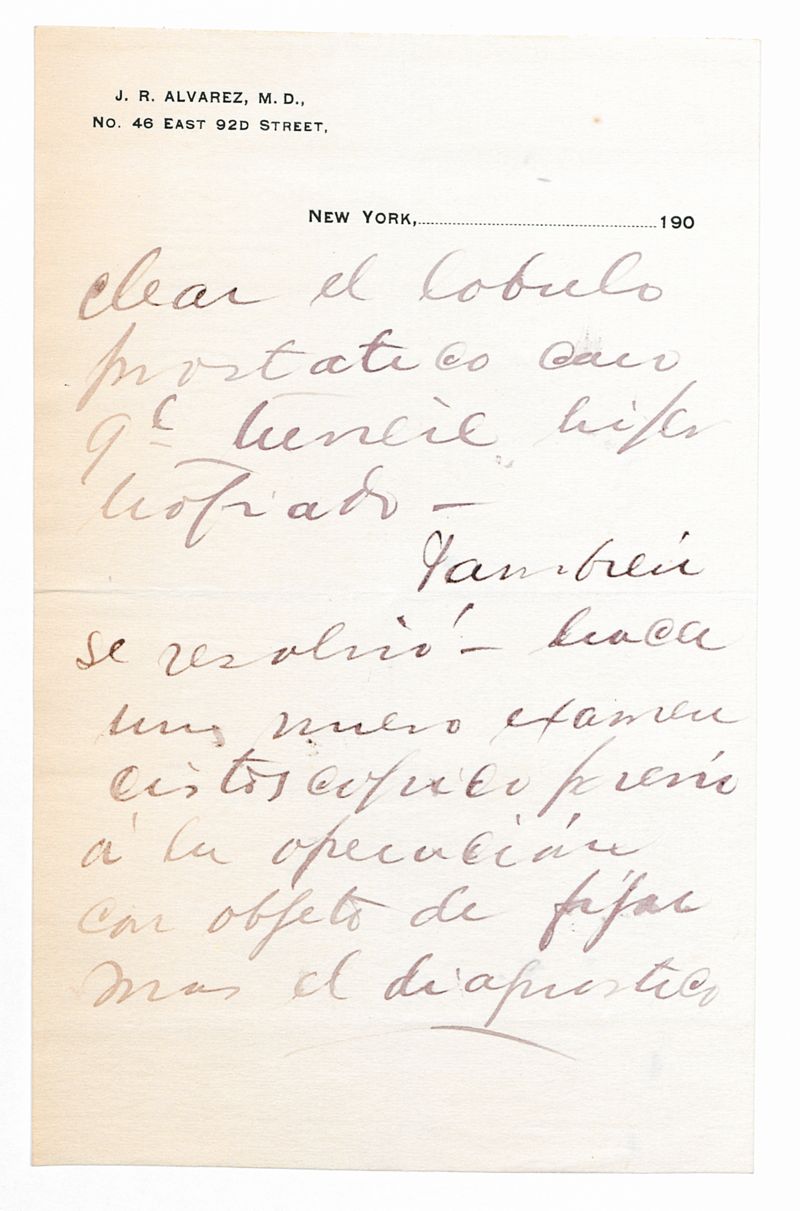 J. R. ALVAREZ, M. D.,
No. 46 EAST 92D STREET,
NEW YORK, 190
clear el lobulo
prostatico caso
qe tuviese hiper
trofiado —
Tambien
se resolvió — haca
un nuevo examen
cistoscopico previo
á la operación
con objeto de fijar
mas el diagnostico